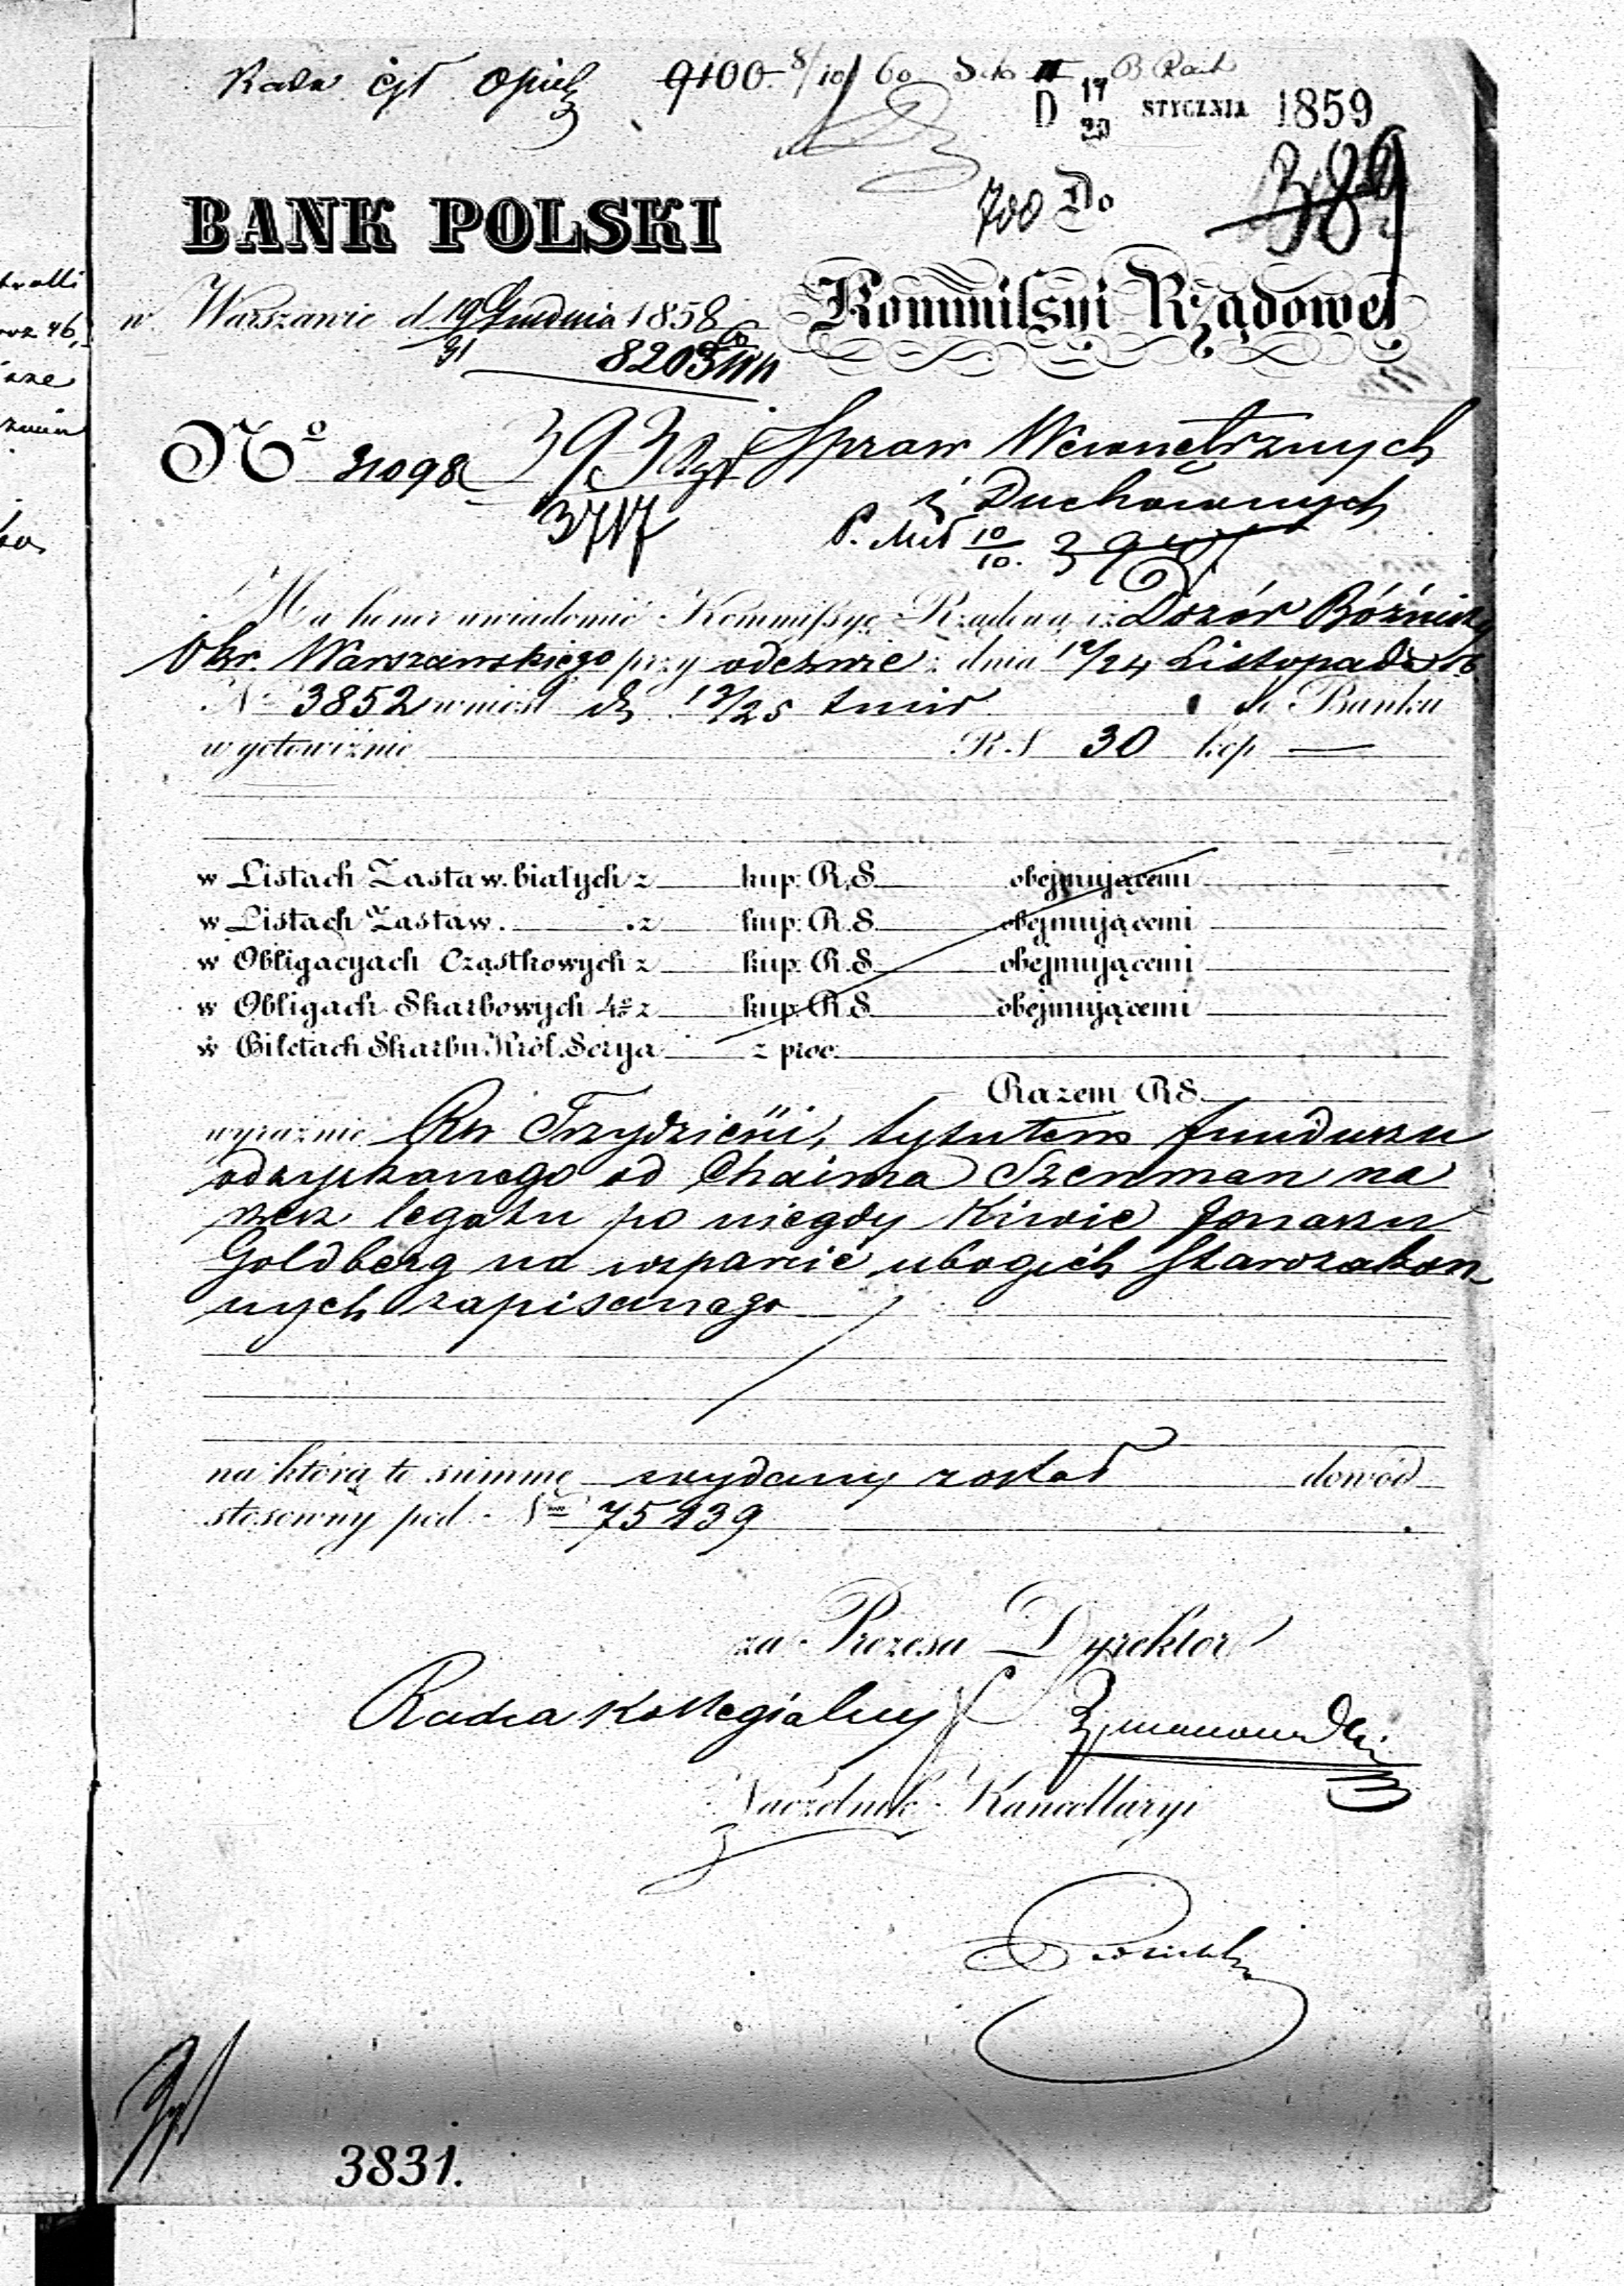 Rada 9100 8/10 60
D 17/29 STYCZNIA 1859
389
700 Do
BANK POLSKI
Kommissyi Rządowej
w Warszawie d 19/31 Grudnia 1858
8203
No 31098
Spraw Wewnętrznych
i Duchownych
3717
10/10.
Ma honor uwiadomić Kommissyę Rządową iż Dozór Bóźniczy
Okr. Warszawskiego przy odezwie z dnia 12/24 Listopada rb
No 3852 wniósł d. 13/25 tmir do Banku
w gotowiźnie R.S 30 kop —
w Listach Zastaw. białych z kup: R.S obejmującemi
w Listach Zastaw. z kup: R.S. obejmującemi
w Obligacyach Cząstkowych z kup: R.S. obejmującemi
w Obligach Skarbowych 4% z kup: R.S obejmującemi
w Biletach Skarbu Król. Serya z proc:
Razem RS.
wyraźnie Rsr Trzydzieści, tytułem funduszu
odzyskanego od Chaima Szenman na
rzecz legatu po niegdy Kiwie Jonaszu
Goldberg na wsparcie ubogich Starozakon-
nych zapisanego
na którą to summę wydany został dowód
stosowny pod No 75239
za Prezesa Dyrektor
Radca Kollegialny
Naczelnik Kancellaryi
3831.